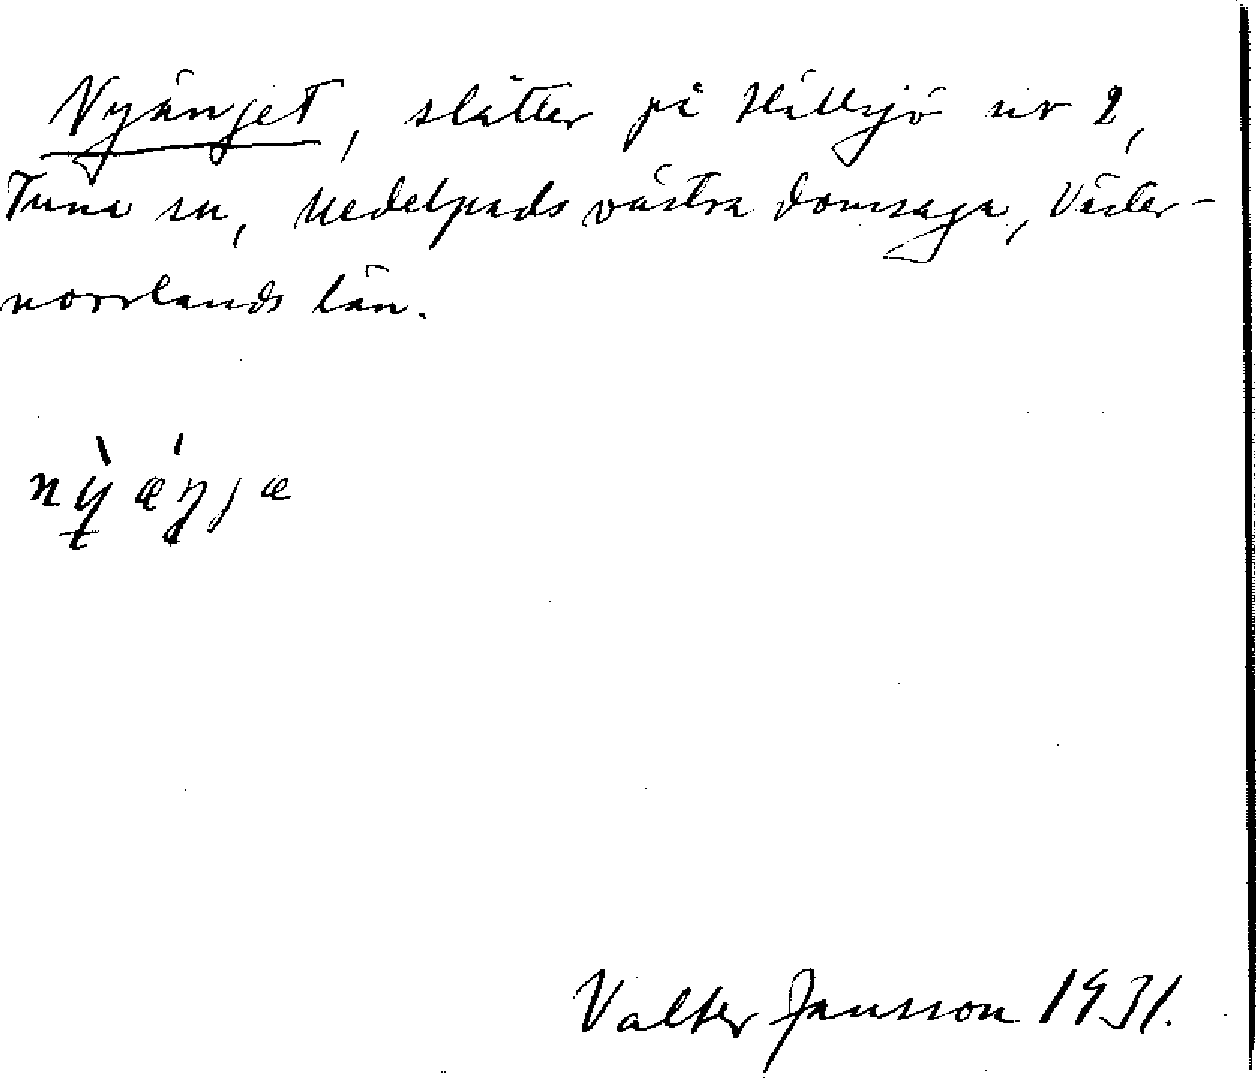 Nyänget, slåtter på Hällsjö nr 2,
Tuna sn, Medelpads västra domsaga, Väster-
norrlands län.
nỳæ̀ŋjæ
Valter Jansson 1931.